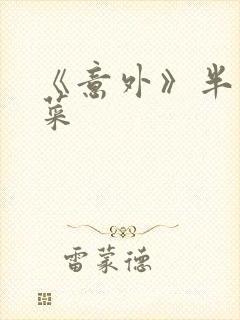 《意外》半
菜
雷蒙德